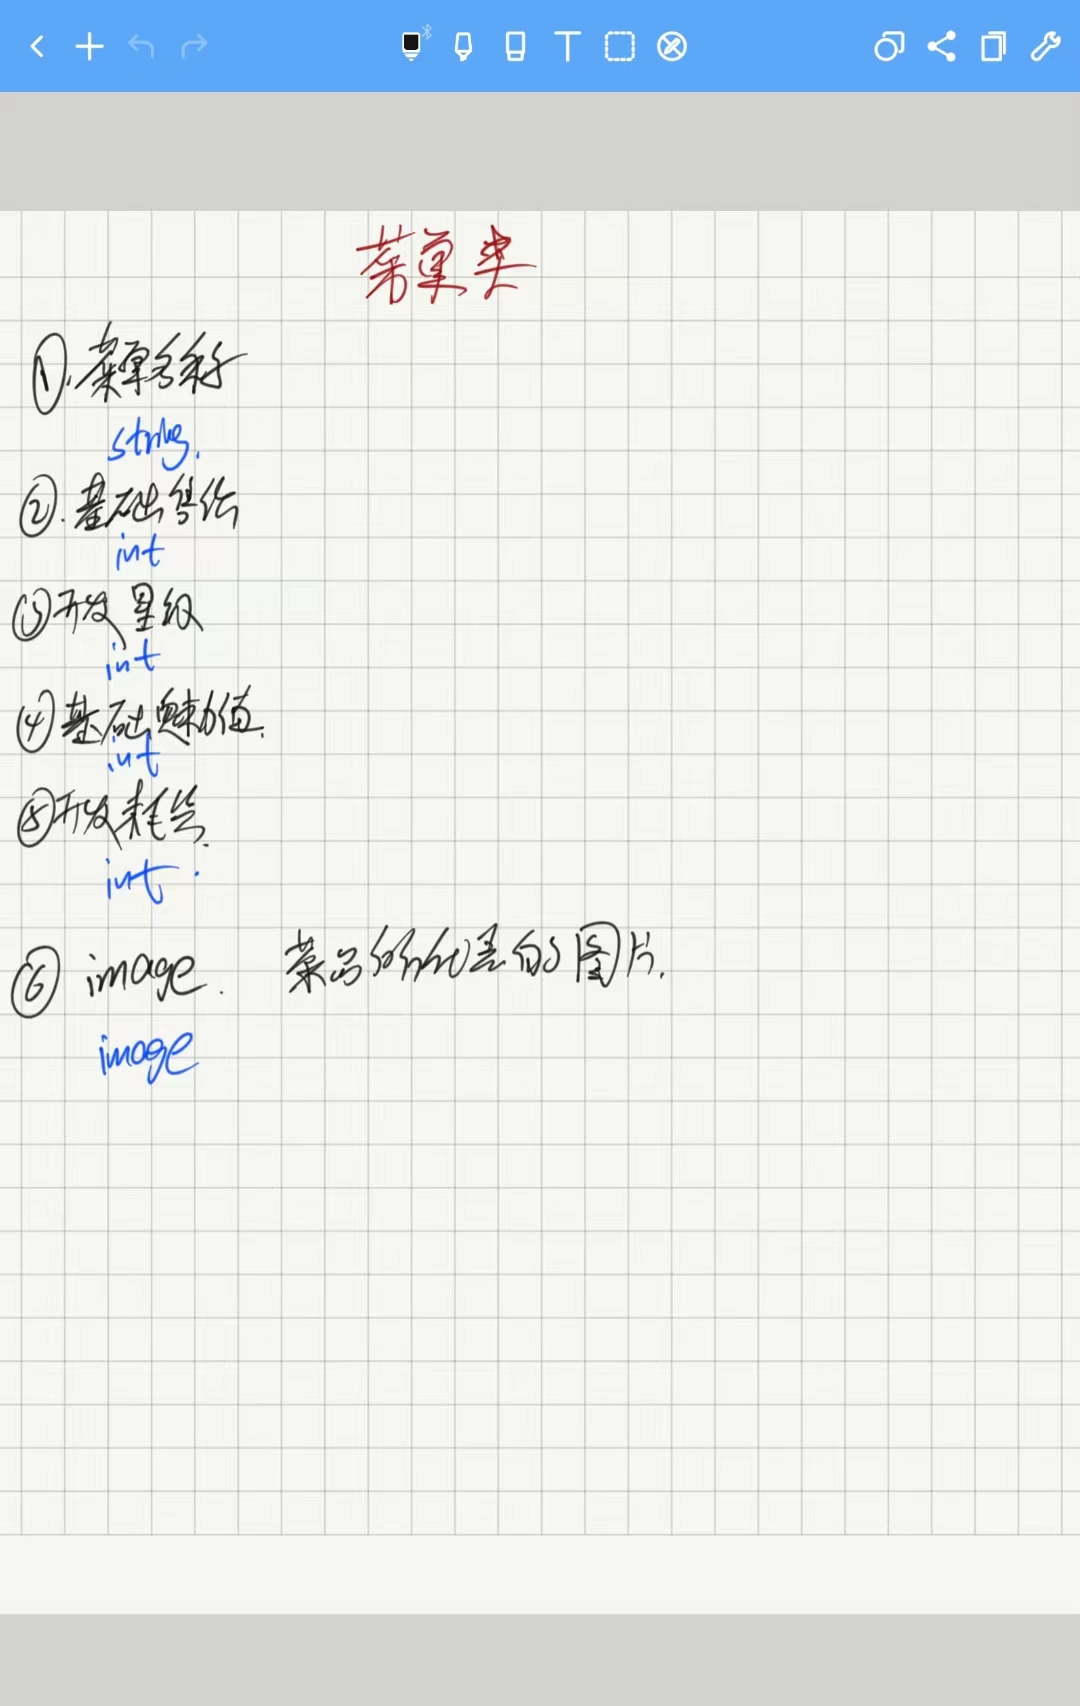 菜单类
①.菜单名称
string.
②.基础售价
int
③开发星级
int
④基础魅力值.
int
⑤开发耗资.
int.
⑥ image. 菜品所代表的图片.
image